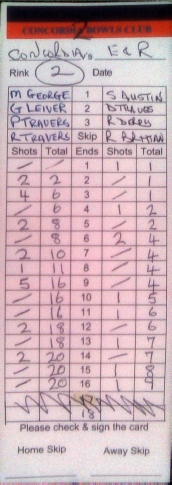 2
CONCORDIA BOWLS CLUB
CONCORDIA v. E & R
Rink 2 Date
M GEORGE 1 S AUSTIN
G LEIVER 2
P TRAVERS 3 R DERRY
R TRAVERS Skip
Shots Total Ends Shots Total
/ / 1 1 1
2 2 2 / 1
4 6 3 / 1
/ 6 4 1 2
2 8 5 / 2
/ 8 6 2 4
2 10 7 / 4
1 11 8 / 4
5 16 9 / 4
/ 16 10 1 5
/ 16 11 1 6
2 18 12 / 6
/ 18 13 1 7
2 20 14 / 7
/ 20 15 1 8
/ 20 16 1 9
18
Please check & sign the card
Home Skip Away Skip